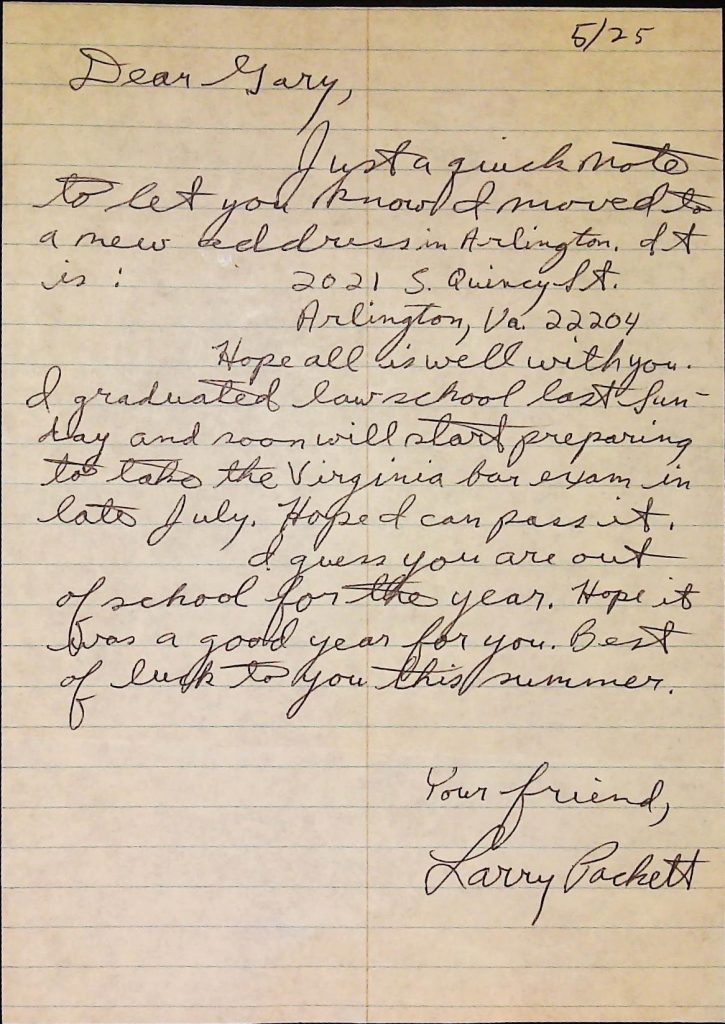 5/25
Dear Gary,
Just a quick note
to let you know I moved to
a new address in Arlington. It
is : 2021 S. Quincy St.
Arlington, Va. 22204
Hope all is well with you.
I graduated law school last Sun-
day and soon will start preparing
to take the Virginia bar exam in
late July. Hope I can pass it.
I guess you are out
of school for the year. Hope it
was a good year for you. Best
of luck to you this summer.
Your friend,
Larry Pockett